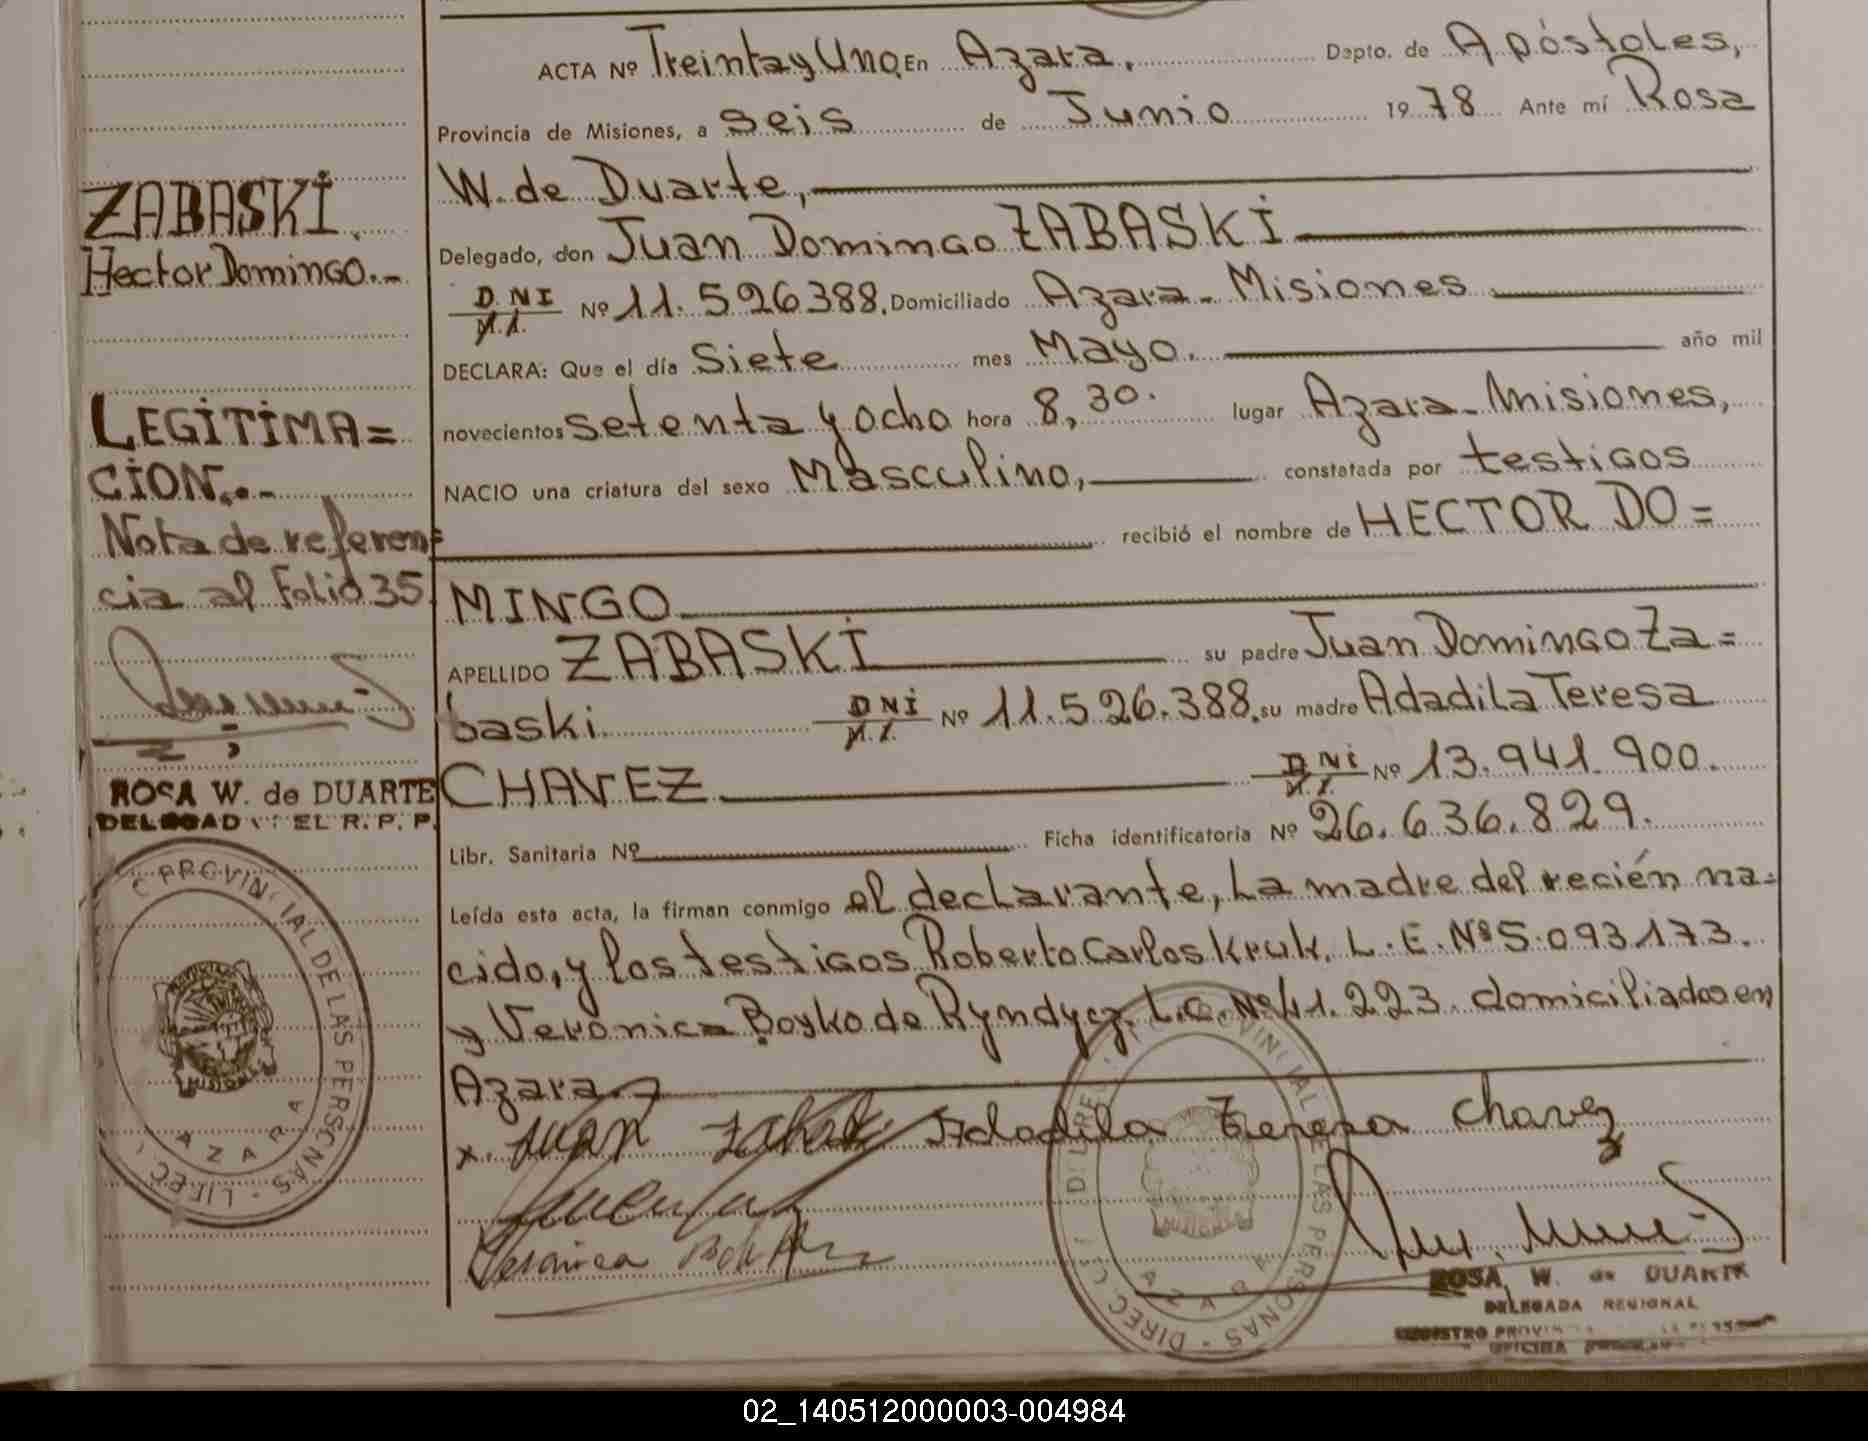 ACTA Nº Treinta y Uno. En Azara, Dapto. de Apóstoles,
Provincia de Misiones, a Seis de Junio 1978 Ante mí Rosa
W. de Duarte,
Delegado, don Juan Domingo ZABASKI
DNI M.I. Nº 11.526388. Domiciliado Azara - Misiones
DECLARA: Que el día Siete mes Mayo. año mil
novecientos setenta y ocho hora 8,30. lugar Azara - Misiones,
NACIO una criatura del sexo Masculino, constatada por testigos
recibió el nombre de HECTOR DO=
MINGO
APELLIDO ZABASKI su padre Juan Domingo Za=
baski. DNI M.I. Nº 11.526.388. su madre Adadila Teresa
CHAVEZ DNI M.I. Nº 13.941.900.
Libr. Sanitaria Nº Ficha identificatoria Nº 26.636.829.
Leída esta acta, la firman conmigo el declarante, La madre del recién na=
cido, y los testigos Roberto Carlos Kruk. L.E. Nº 5.093173.
y Veronica Boyko de Ryndycz. L.C. Nº 41.223. domiciliados en
Azara.
x. Juan Adadila Teresa Chavez
Veronica
ROSA W. de DUARTE
DELEGADA REGIONAL
ZABASKI.
Hector Domingo.-
LEGITIMA=
CION.-
Nota de referen=
cia al Folio 35.
ROSA W. de DUARTE
EL R. P. P.
PROVINCIAL DE LAS PERSONAS
MISIONES
AZARA
PROVINCIAL DE LAS PERSONAS - DIREC
AZARA
02_140512000003-004984